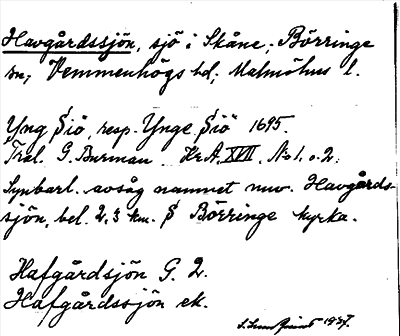 Havgårdssjön, sjö i Skåne, Börringe
sn, Vemmenhögs hd, Malmöhus l.
"Yng Siö", resp. "Ynge Siö" 1695.
Trol. G. Burman. Kr.A. XVII. No 1. o. 2.
Synbarl. avsåg namnet nuv. Havgårds-
sjön, bel. 2,3 km. S Börringe kyrka.
Hafgårdsjön G. 2.
Hafgårdssjön ek.
1937.